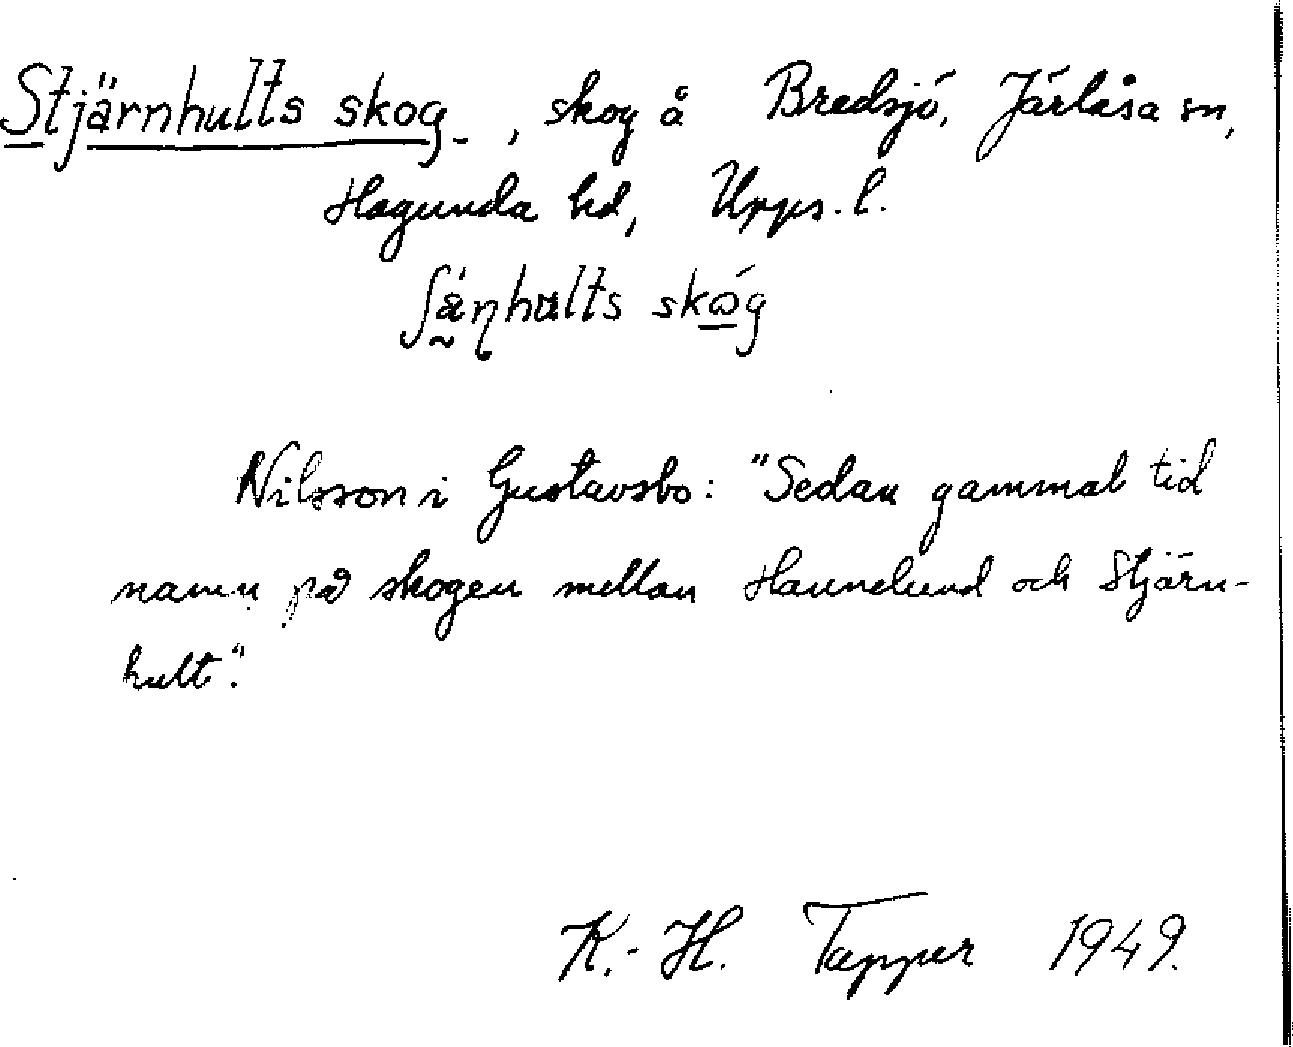 Stjärnhults skog , skog å Bredsjö, Järlåsa sn,
Hagunda hd, Upps. l.
ʃä̰ɳhults skóg
Nilsson i Gustavsbo: "Sedan gammal tid
namn på skogen mellan Hannelund och Stjärn-
hult".
K.-H. Tapper 1949.